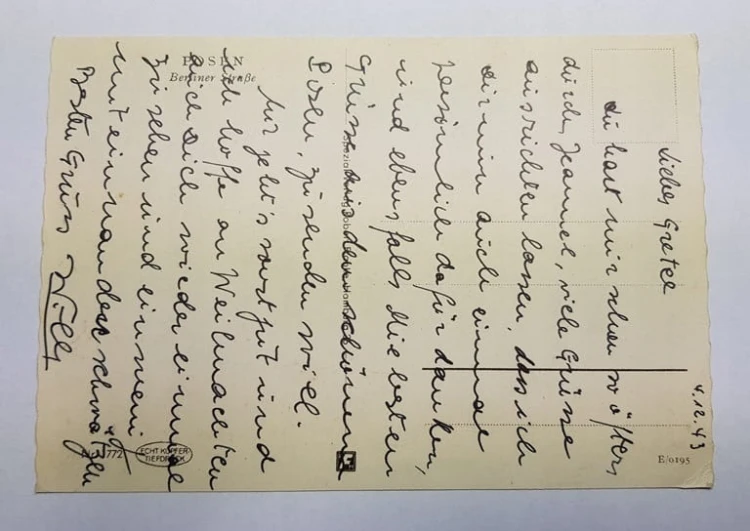 4.12.43
Liebes Gretel
Du hast mir schon so öfters,
durch viele Grüsse
ausrichten lassen, dass ich
Dir nun auch einmal
persönlich dafür danken,
und ebenfalls die besten
Grüsse aus dem schönen
Posen, zusenden will.
Mir geht's sonst gut und
ich hoffe an Weihnachten
auch Dich wieder einmal
zu sehen und ein wenig
miteinander schwatzen
Besten Gruss Willy
POSEN
Berliner Straße
772
ECHT KUPFER
TIEFDRUCK
E/0195